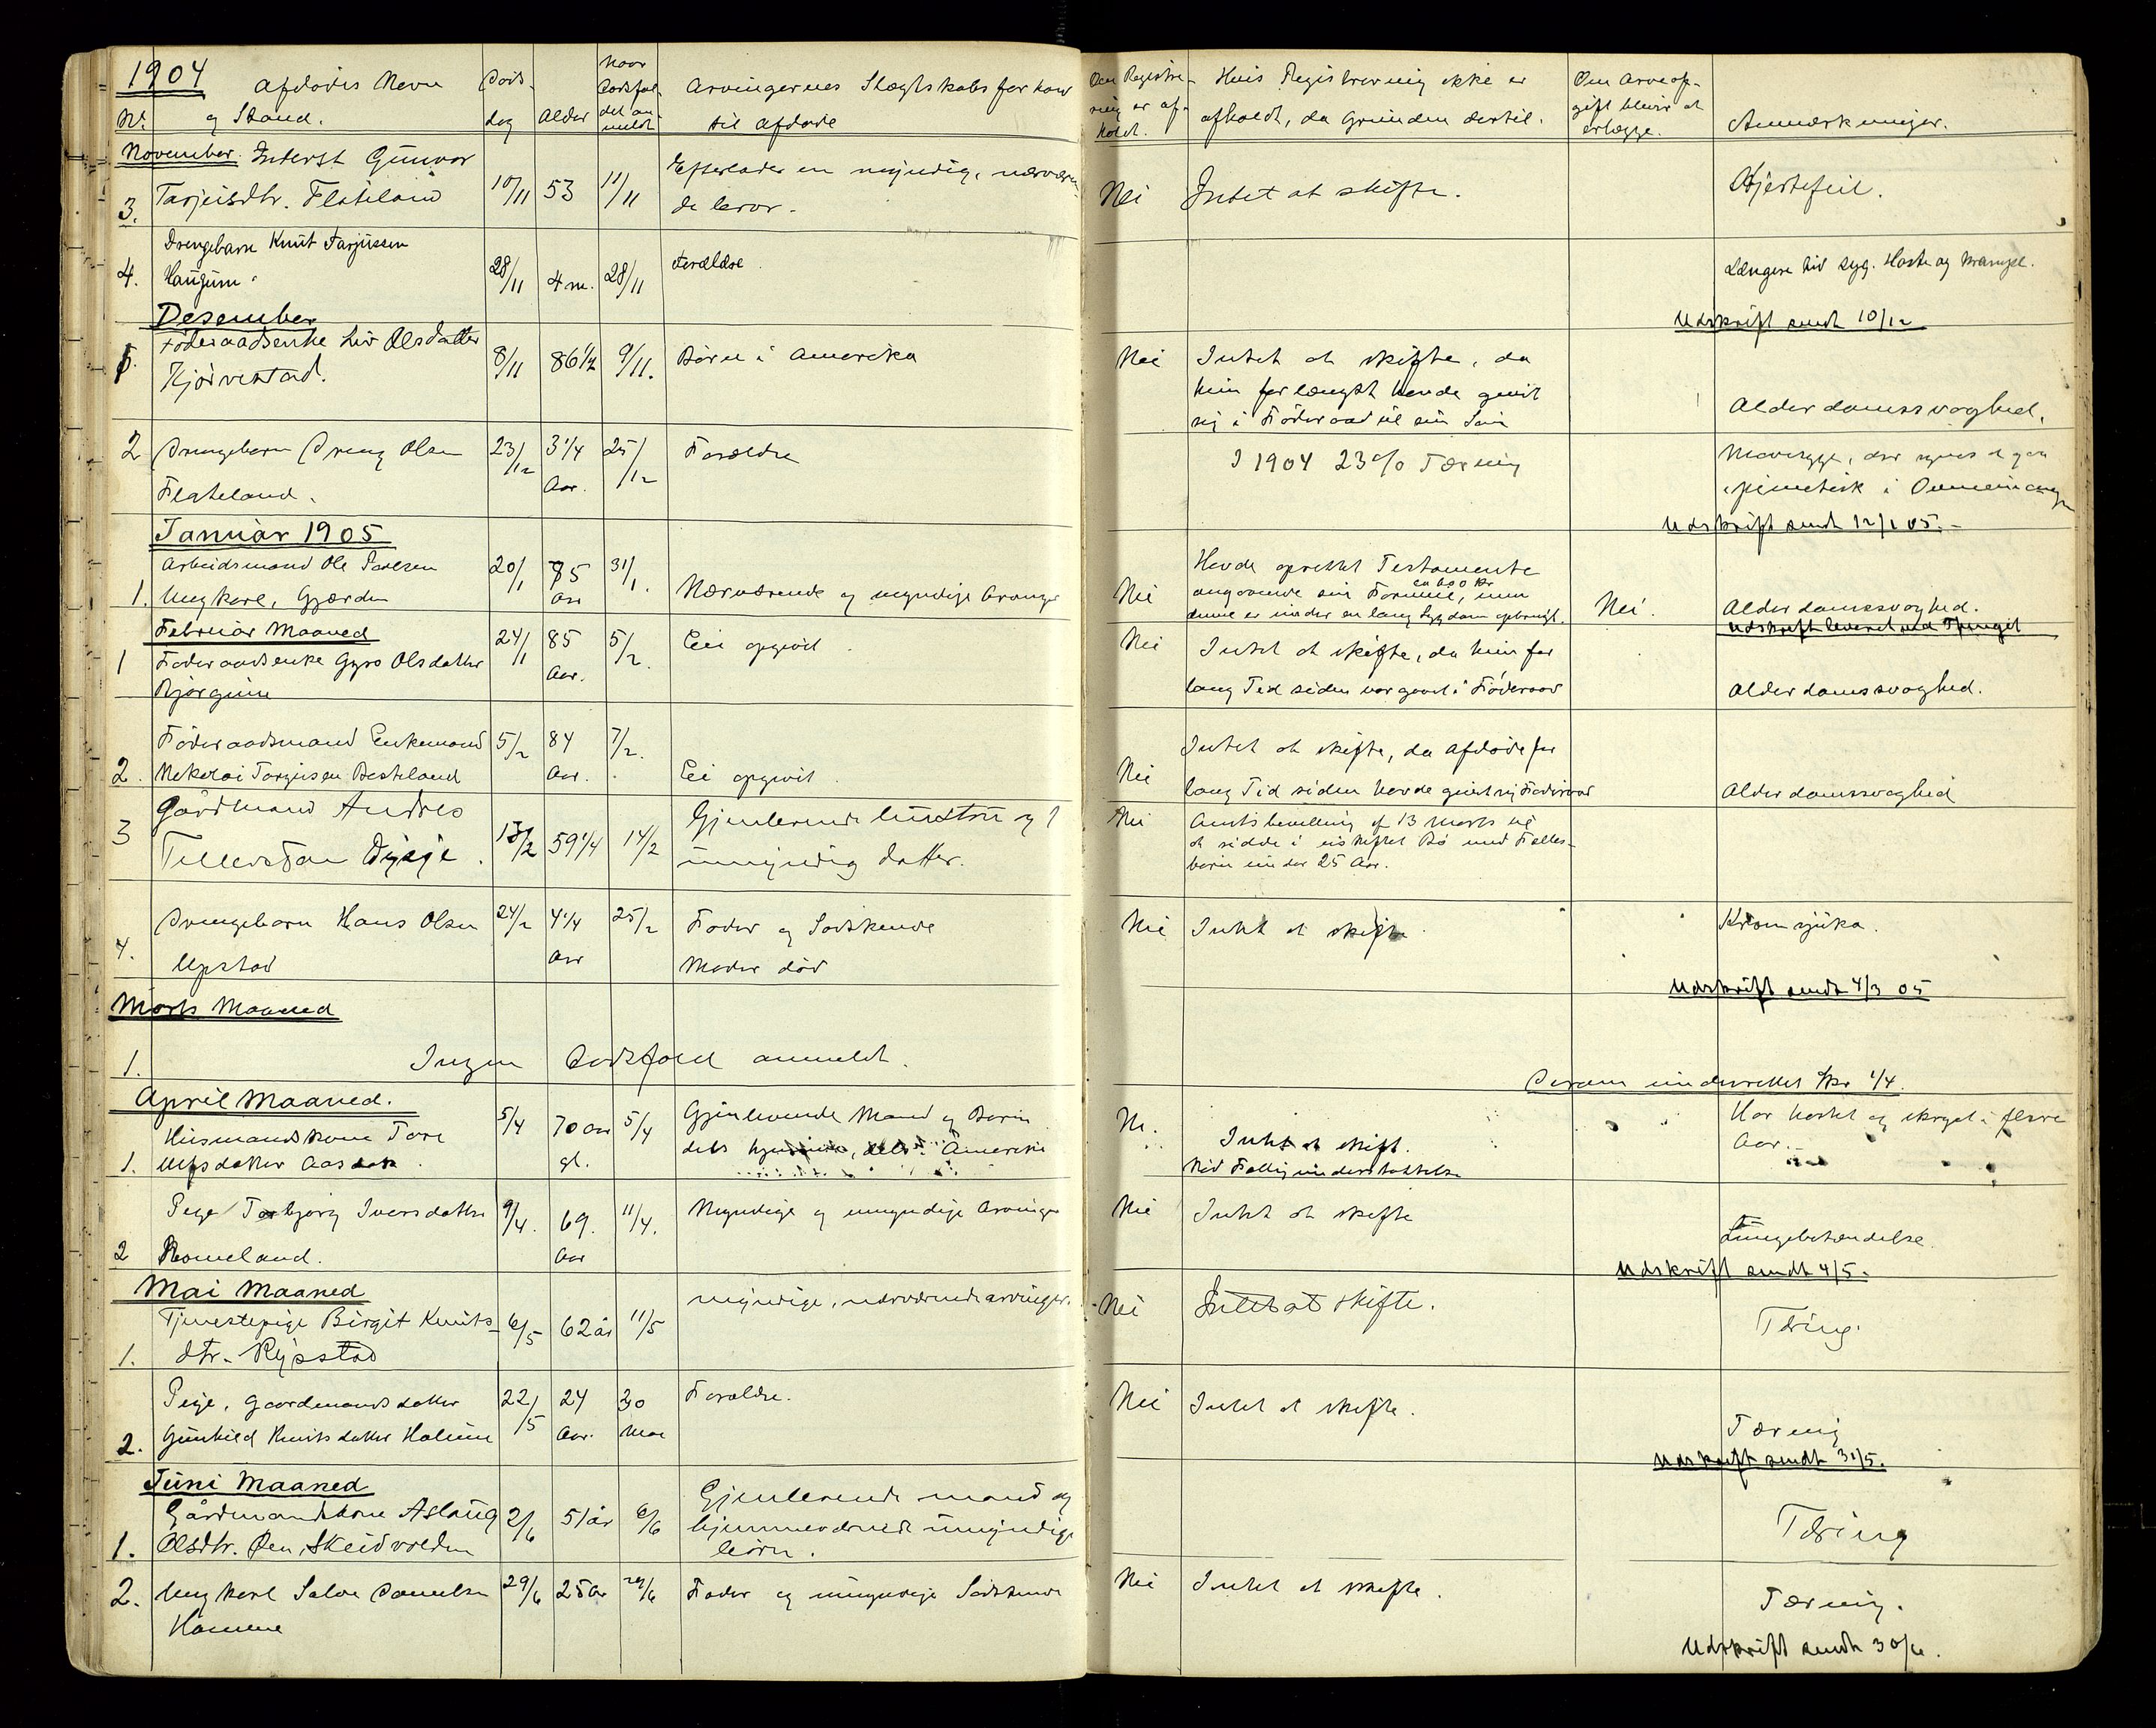 1904
Nr. Afdødes Navn og Stand. Døds dag Alder Naar Dødsfaldet anmeldt Arvingernes Slægtskabsforhold til afdøde Om Registrering er afholdt. Hvis Registrering ikke er afholdt, da Grunden dertil. Om Arveafgift bliver at erlægge. Anmærkninger.
November. Inderst Gunvor
3. Tarjeisdtr. Flateland 10/11 53 11/11 Efterlader en myndig, nærværende bror. Nei Intet at skifte. Hjertefeil.
Drengebarn Knut Tarjussen
4. Haugum. 28/11 4 m. 28/11 Forældre. Længere tid syg. Hoste og krampe.
Desember Udskrift sendt 10/12
Föderaadsenke Liv Olsdatter
Kjörvestad. 8/11 86 1/2 9/11. Börn i Amerika Nei Intet at skifte, da
hun forlængst havde givit
sig i Föderaad til sin Sön Alderdomssvaghed.
2 Drengebarn Dreng Olsen 23/12 3 1/4 Aar. 25/12 Forældre I 1904 23% Tæring
Flateland. Mavesyge, der synes at gaa
epimetisk i Omegnen
Januar 1905 Udskrift sendt 12/1 05.-
Arbeidsmand Ole Paalsen 20/1 85 Aar 31/1. Havde oprettet Testamente
1. Ungkarl, Gjærden Nærværende og myndige Arvinger Nei angaaende sin Formue, ca 600 kr men
denne er under en lang Sygdom opbrugt. Nei. Alderdomssvaghed.
Februar Maaned Udskrift leveret ved Thinget
1 Föderaadsenke Gyro Olsdatter 24/1 85 Aar. 5/2. Ei opgivit Nei Intet at skifte, da hun for
Bjørgum lang Tid siden var gaaet i Föderaad Alderdomssvaghed.
Föderaadsmand Enkemand 5/2 84 Aar. 7/2. Intet at skifte, da afdøde for
2. Nikolai Torgusen Besteland Ei opgivit. Nei lang Tid siden havde givit sig i Föderaad Alderdomssvaghed
Gårdmand Andres Gjenlevende hustru og 1 Nei Amtsbevilling af 13 Marts til
3 Tellevsson Dysje. 13/2 59 1/4 14/2 umyndig datter. at sidde i uskiftet Bo med Fælles-
børn under 25 Aar.
Drengebarn Hans Olsen 24/2 4 1/4 Aar 25/2 Fader og Södskende Nei Intet at skifte Kromsjuka.
4. Upstad Moder död
Udskrift sendt 4/3 05
Marts Maaned
1. Ingen Dødsfald anmeldt.
Derom underrettet Skr 1/4.
April Maaned.
Husmandskone Tore 5/4 70 aar gl. 5/4 Gjenlevende Mand og Börn N. Intet at skift. Har hostet og skrgst i flere
1. Ulfsdatter Aasdek. dels hjemme, dels i Amerika Nöd Fattigunderstöttelse Aar.
Pige Torbjørg Iversdatter 9/4. 69. Aar 11/4. Myndige og umyndige Arvinger Nei Intet at skifte
2 Romeland. Lungebetændelse.
Udskrift sendt 4/5.
Mai Maaned
Tjenestepige Birgit Knuts- 6/5 62 år 11/5 myndige, nærværende arvinger. Nei Intet at skifte.
1. dtr. Rysstad Tæring.
Pige, Gaardmandsdatter 22/5 24 Aar. 30 Mai Forældre. Nei Intet at skifte.
2. Gunhild Knutsdatter Holum Tæring
Udskrift sendt 31/5.
Juni Maaned
Gårdmandskone Aslaug 2/6 51 år 6/6 Gjenlevende mand og
1. Olsdtr. Øen, Skeidvolden hjemmeværende umyndige
børn. Tæring
2. Ungkarl Salve Danielsen 29/6 25 Aar 29/6 Fader og umyndige Södskende Nei Intet at skifte. Tæring.
Homme
Udskrift sendt 30/6.